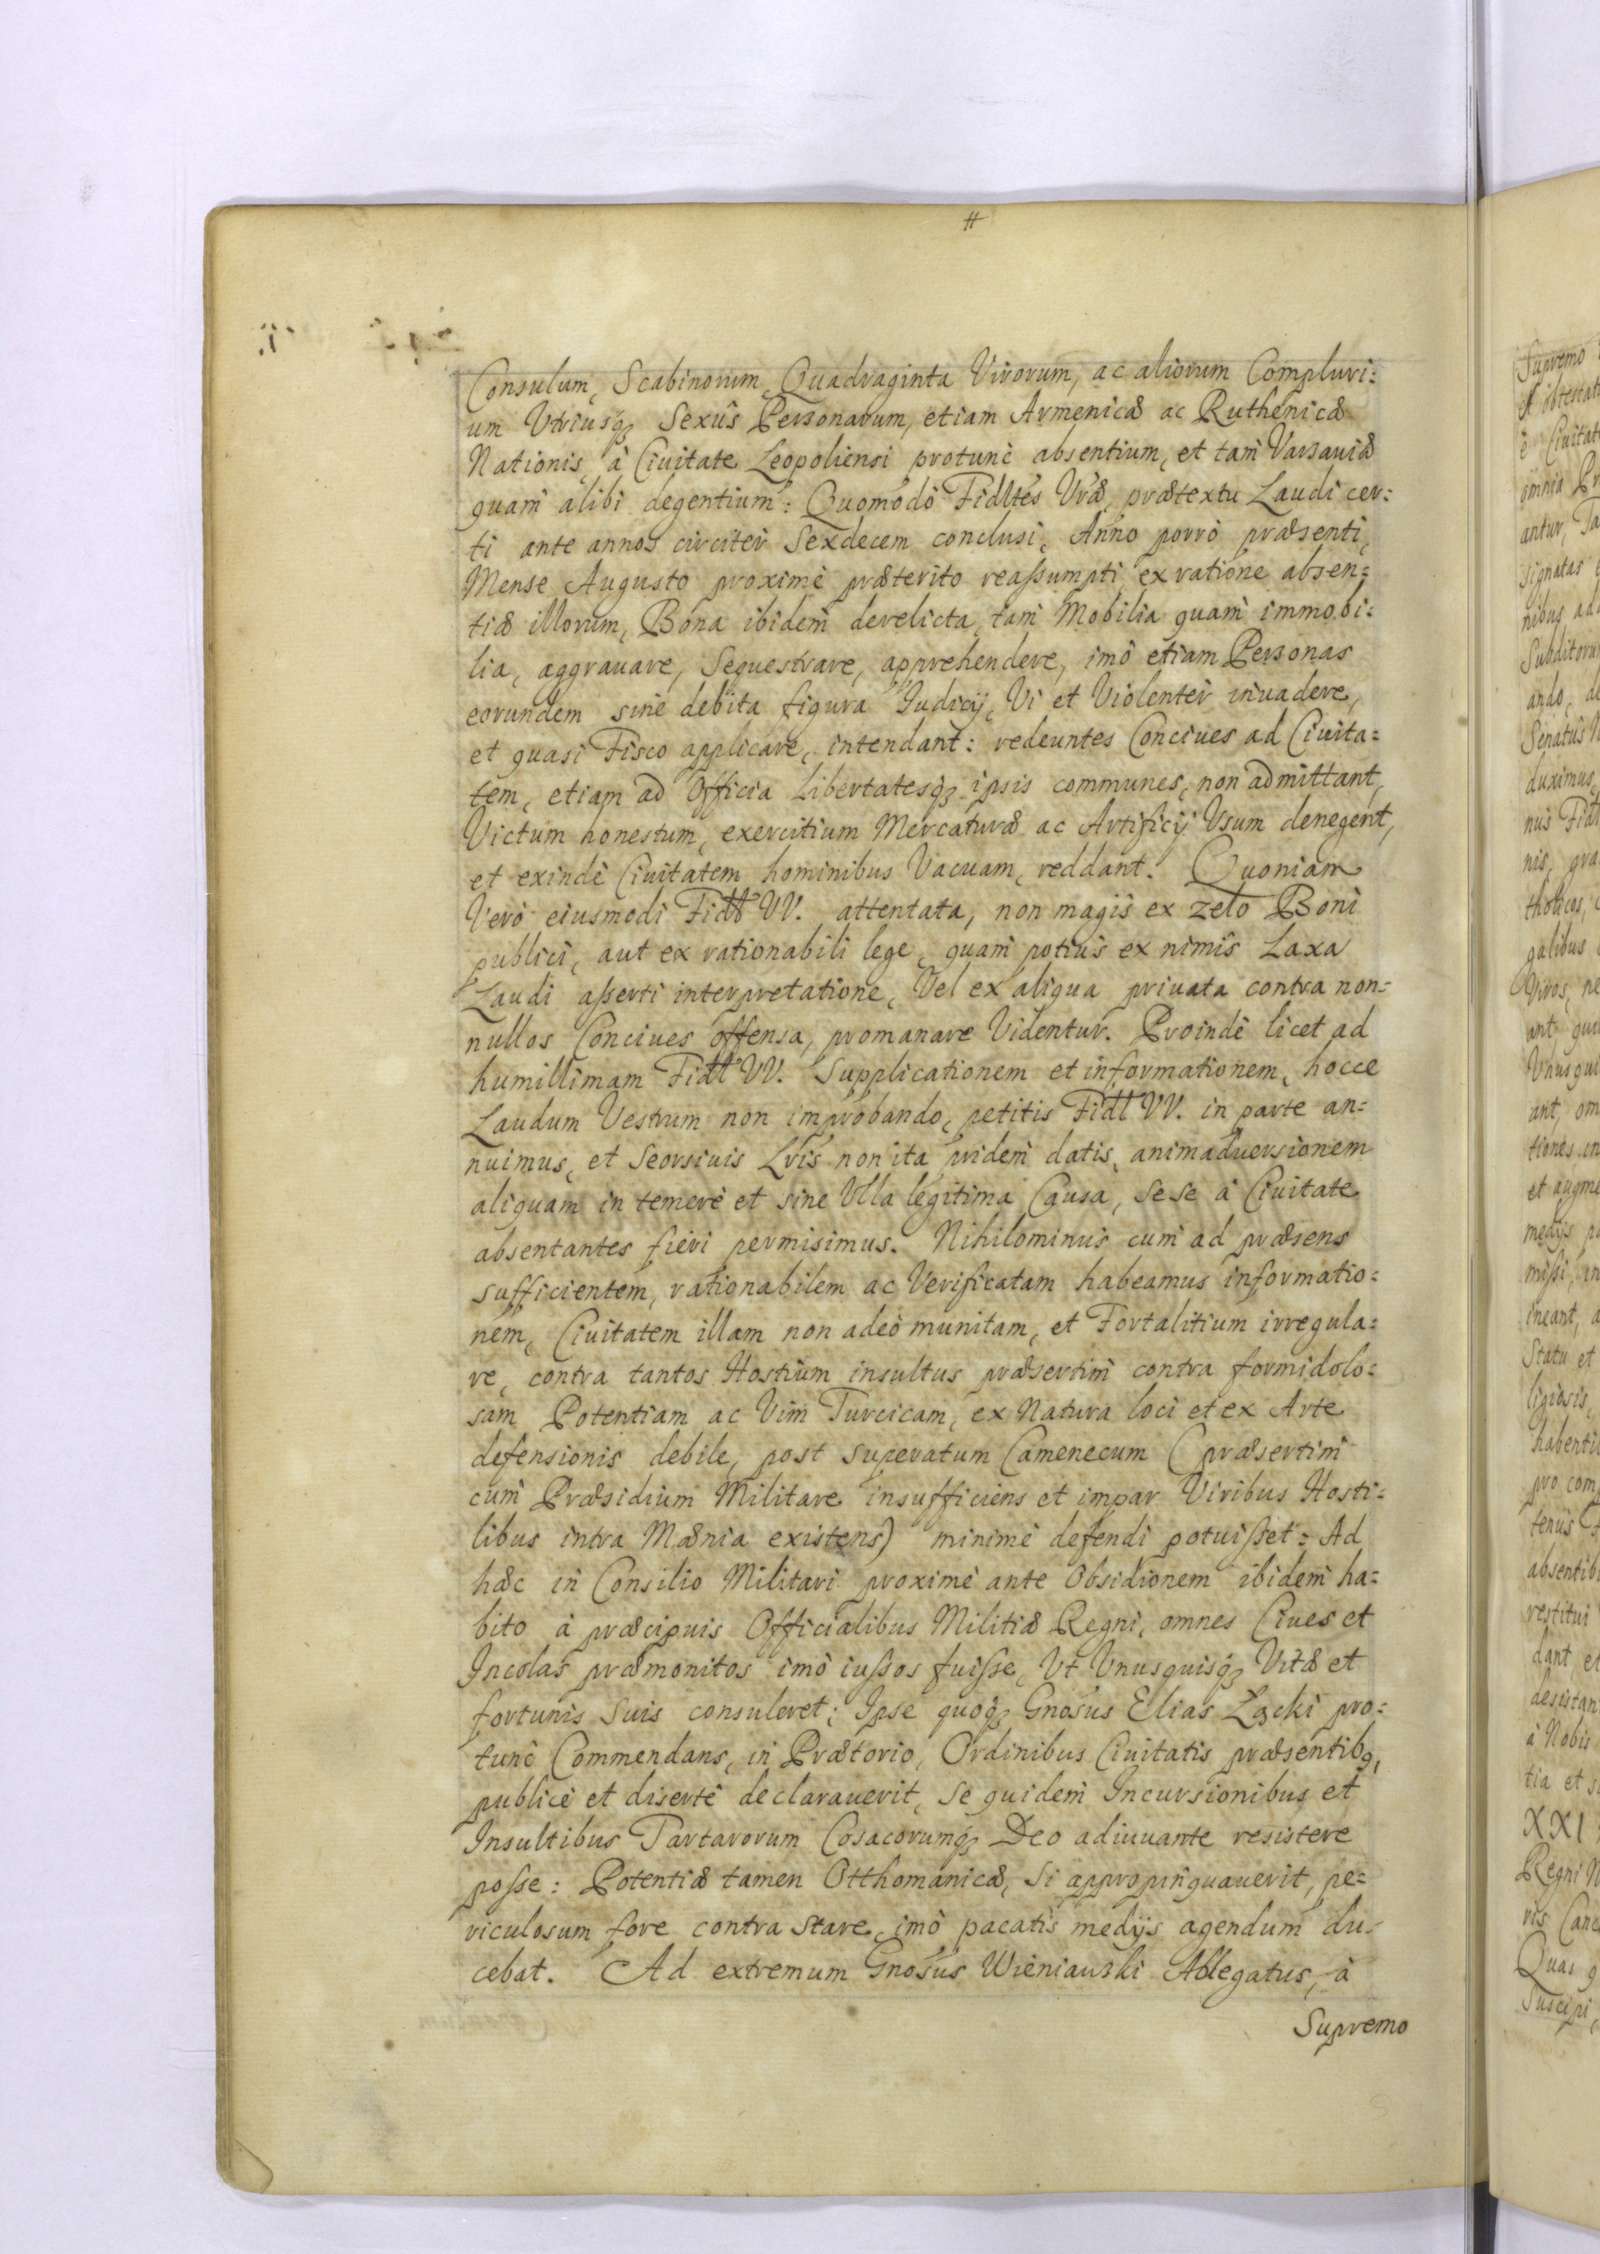 Consulum, Scabinorum, Quadraginta Virorum, ac aliorum Compluri=
um Vtriusq3 Sexûs Personarum, etiam Armenicæ ac Ruthenicæ
Nationis, à Ciuitate Leopoliensi protunc absentium, et tam Varsauiæ
quam alibi degentium: Quomodò Fidltes Vræ, prætextu Laudi cer=
ti ante annos circiter Sexdecem conclusi, Anno porrò præsenti,
Mense Augusto proximè præterito reassumpti, ex ratione absen=
tiæ illorum, Bona ibidem derelicta, tam Mobilia quam immobi=
lia, aggrauare, Sequestrare, apprehendere, imò etiam Personas
eorundem sine debita figura Iudicij, Vi et Violenter inuadere,
et quasi Fisco applicare, intendant: redeuntes Conciues ad Ciuita=
tem, etiam ad Officia Libertatesq3 ipsis communes, non admittant,
Victum honestum, exercitium Mercaturæ ac Artificij Vsum denegent,
et exindè Ciuitatem hominibus Vacuam, reddant. Quoniam
Verò eiusmodi Fidtt VV. attentata, non magis ex zelo Boni
publici, aut ex rationabili lege, quam potius ex nimis Laxa
Laudi asserti interpretatione, Vel ex aliqua priuata contra non=
nullos Conciues offensa, promanare Videntur. Proindè licet ad
humillimam Fidtt VV. Supplicationem et informationem, hocce
Laudum Vestrum non improbando, petitis Fidtt VV. in parte an=
nuimus, et Seorsiuis Lris non ita pridem datis, animaduersionem
aliquam in temerè et sine Vlla legitima Causa, sese à Ciuitate
absentantes fieri permisimus. Nihilominus cum ad præsens
sufficientem, rationabilem ac Verificatam habeamus informatio=
nem, Ciuitatem illam non adeò munitam, et Fortalitium irregula=
re, contra tantos Hostium insultus præsertim contra formidolo=
sam Potentiam ac Vim Turcicam, ex Natura loci et ex Arte
defensionis debile, post superatum Camenecum (præsertim
cum Præsidium Militare insufficiens et impar Viribus Hosti=
libus intra Mænia existens) minimè defendi potuisset: Ad
hæc in Consilio Militari proximè ante Obsidionem ibidem ha=
bito à præcipuis Officialibus Militiæ Regni, omnes Ciues et
Incolas præmonitos imò iussos fuisse, Vt Vnusquisq3 Vitæ et
fortunis Suis consuleret; Ipse quoq3 Gnosus Elias Łącki pro=
tunc Commendans, in Prætorio, Ordinibus Ciuitatis præsentib9,
publicè et disertè declarauerit, se quidem Incursionibus et
Insultibus Tartarorum Cosacorumq3 Deo adiuuante resistere
posse: Potentiæ tamen Otthomanicæ, Si appropinquauerit, pe=
riculosum fore contra stare, imò pacatis medijs agendum du=
cebat. Ad extremum Gnosus Wieniawski Ablegatus, à
Supremo